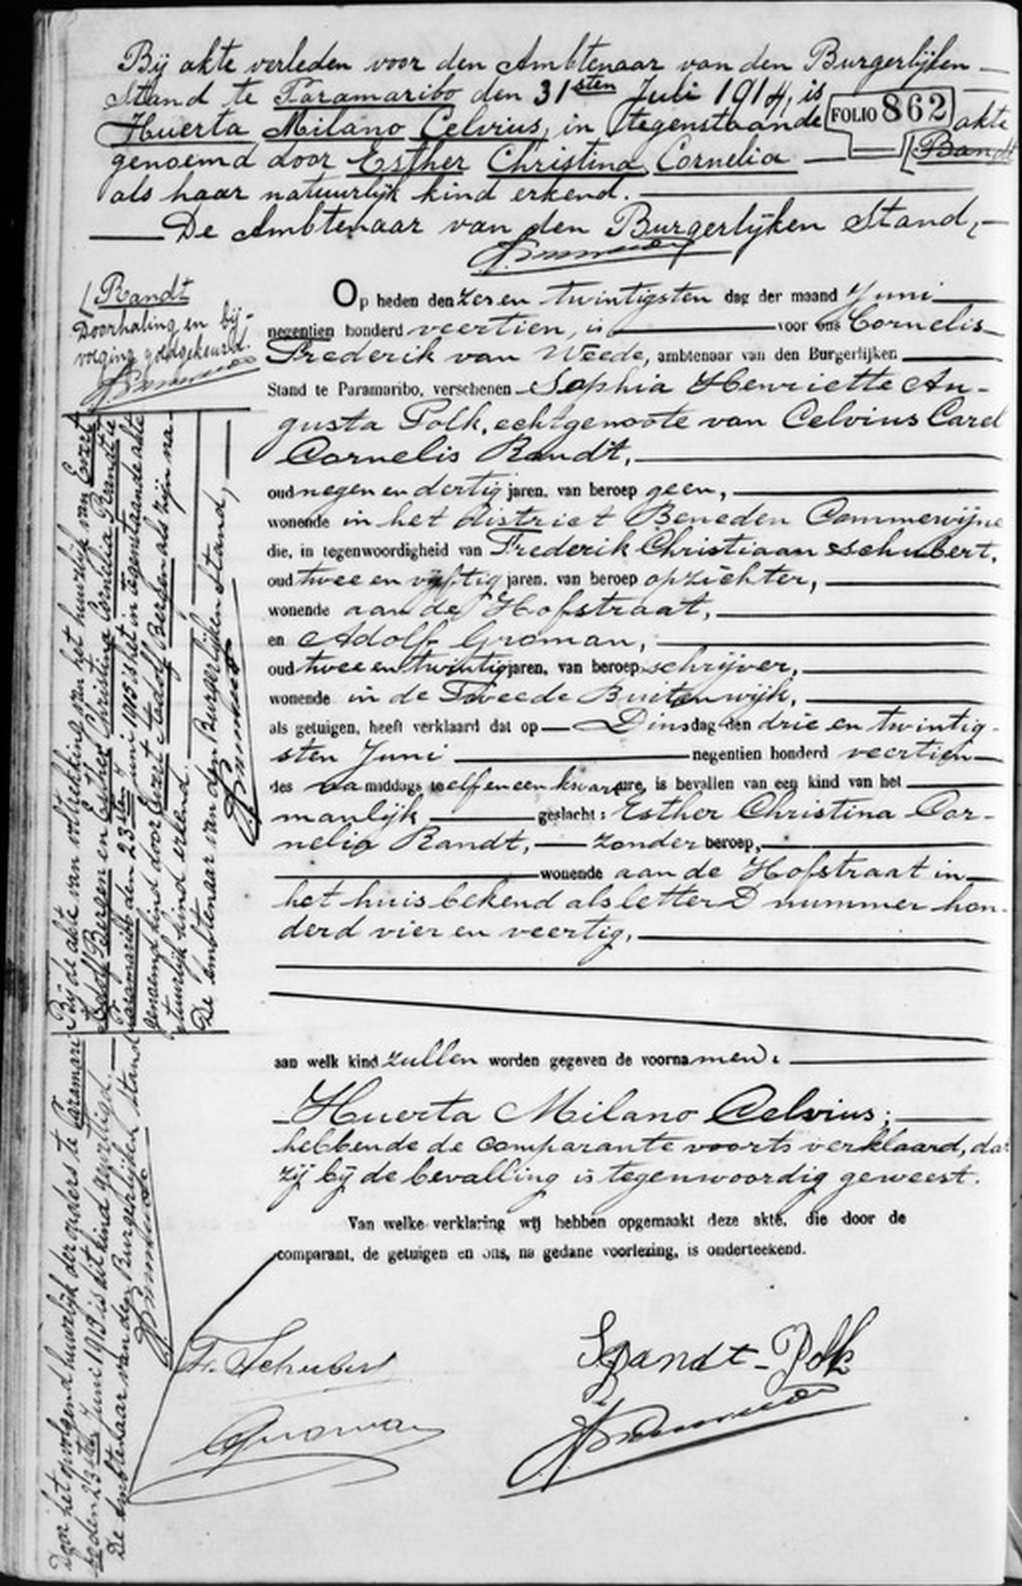 Bij akte verleden voor den Ambtenaar van den Burgerlijken
Stand te Paramaribo den 31sten Juli 1914, is
Huerta Milano Celvius, in tegenstaande akte
FOLIO 862
genoemd door Esther Christina Cornelia [Bandt
als haar natuurlijk kind erkend.
De Ambtenaar van den Burgerlijken Stand,
[Randt
Doorhaling en bij-
voeging goedgekeurd.
Op heden den zes en twintigsten dag der maand Juni
negentien honderd veertien, is voor ons Cornelis
Frederik van Weede, ambtenaar van den Burgerlijken
Stand te Paramaribo, verschenen Sophia Henriette Au-
gusta Polk, echtgenoote van Celvius Carel
Cornelis Randt,
oud negen en dertig jaren, van beroep geen,
wonende in het district Beneden Commewijne
die, in tegenwoordigheid van Frederik Christiaan Schubert,
oud twee en vijftig jaren, van beroep opzichter,
wonende aan de Hofstraat,
en Adolf Groman,
oud twee en twintig jaren, van beroep schrijver,
wonende in de Tweede Buitenwijk,
als getuigen, heeft verklaard dat op Dinsdag den drie en twintig-
sten Juni negentien honderd veertien
des namiddags te elf en een kwart ure, is bevallen van een kind van het
manlijk geslacht: Esther Christina Cor-
nelia Randt, zonder beroep,
wonende aan de Hofstraat in
het huis bekend als letter D nummer hon-
derd vier en veertig,
aan welk kind zullen worden gegeven de voornamen:
Huerta Milano Celvius;
hebbende de comparante voorts verklaard, dat
zij bij de bevalling is tegenwoordig geweest.
Van welke verklaring wij hebben opgemaakt deze akte, die door de
comparant, de getuigen en ons, na gedane voorlezing, is onderteekend.
F. Schubert
Randt-Polk
Groman
Bij de akte van voltrekking van het huwelijk van Evert
Adolf Bergen en Esther Christina Cornelia Randt te
Paramaribo den 23sten Juni 1915 is het in tegenstaande akte
genoemd kind door Evert Adolf Bergen als zijn na-
tuurlijk kind erkend.
De Ambtenaar van den Burgerlijken Stand,
Door het opvolgend huwelijk der ouders te Paramari-
bo den 23sten Juni 1915 is dit kind gewettigd.
De Ambtenaar van den Burgerlijken Stand